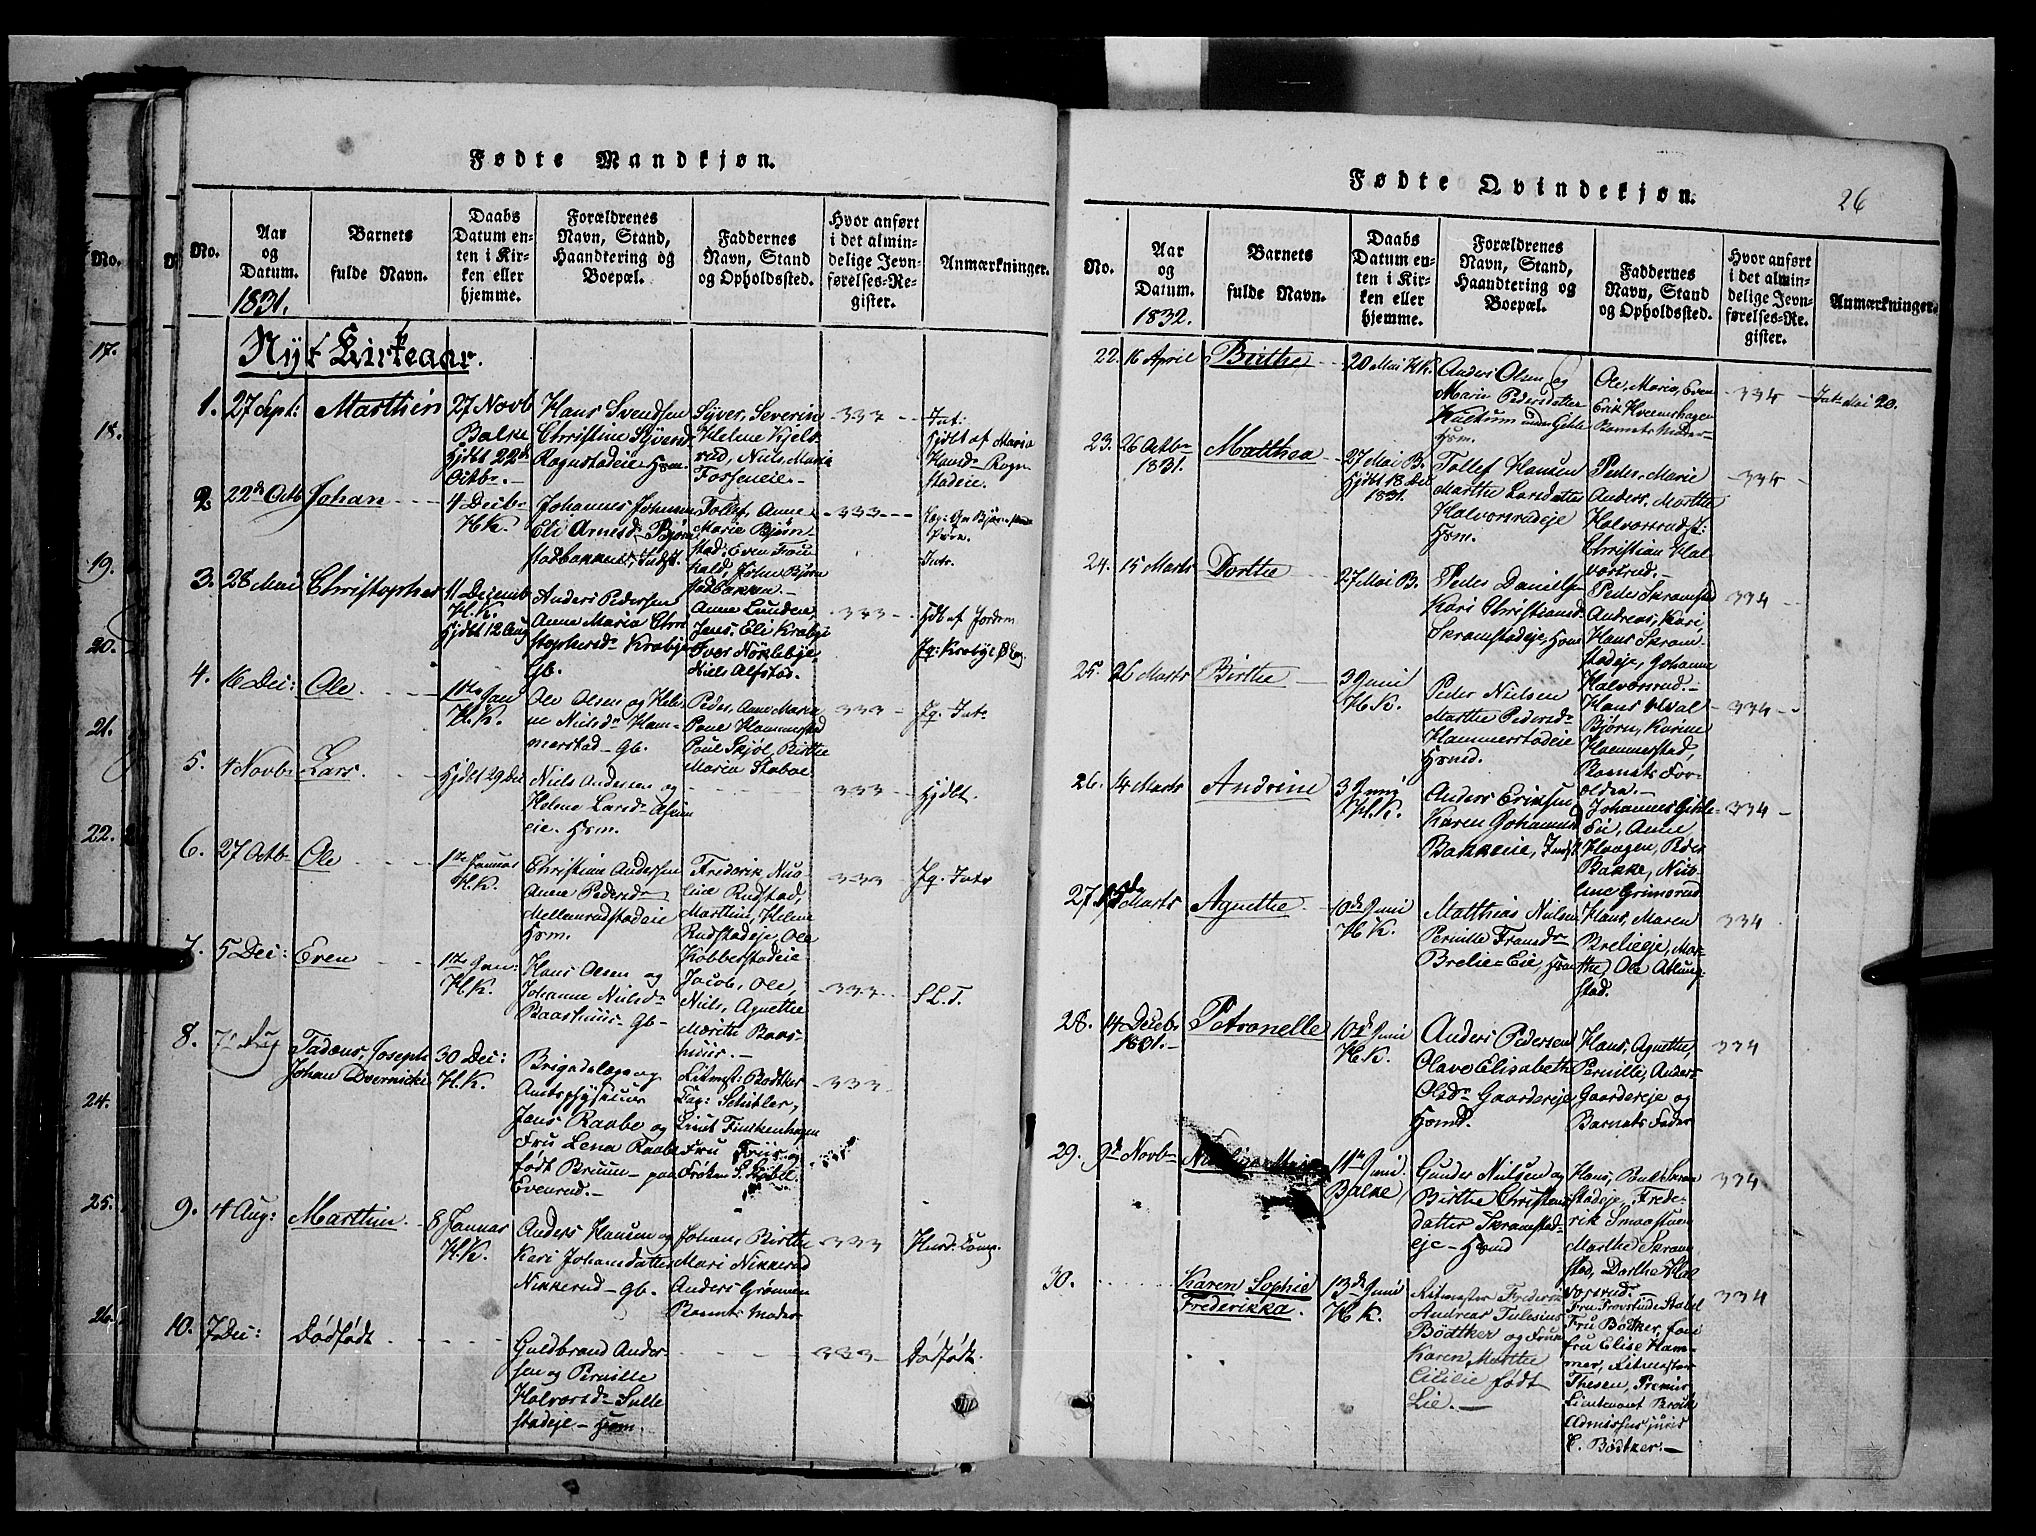 Fødte Mandkjøn.
No.
Aar og Datum. 1831.
Barnets fulde Navn.
Daabs Datum enten i Kirken eller hjemme.
Forældrenes Navn, Stand, Haandtering og Boepæl.
Faddernes Navn, Stand og Opholdssted.
Hvor anført i det almindelige Jevnførelses-Register.
Anmærkninger.
Nyt Kirkeaar.
1. 27 Sept: Marthin 27 Novb Balke Hjdbt 22de Octbr.
Hans Svendsen
Christine Syvers
Rognstadeie Hsm.
Syver, Severin
Helene Kjels
rud, Niels, Maria
Forseneie
333
Hjdbt af Maria
Hansd. Rogn
stadeie.
2. 22de Octb Johan 4 Decbr H.K.
Johannes Johannesen
Eli Arnesd. Bjørn
stadbakken, Indst.
Tollef, Anne
Marie Bjørn
stad, Even
333
3. 28 Mai Christopher 11 Decemb H.K. Hjdbt 12 Aug
Anders Pedersen
Anne Maria Chri
stophersdr Krabye
Gb.
Anne Lunden,
Jens, Eli Krabye
Iver Nøklebye
Niels Alfstad.
333
Hjdbt af Jordem
4. 16 Dec: Ole 1ste Jan H.K.
Ole Olsen og Hele
ne Nielsdr Ham-
merstad Gb.
Peder, Anne Maria
Poul Hammerstad
Poul Skjøl, Birthe
Maria Staboe
333
Jg. Intr
5. 4 Novbr Lars. Hjdbt 29 Dec
Niels Andersen og
Helene Larsdr Alfum
eie. Hsm.
333
Hjdbt.
6. 27 Octbr Ole 1ste Januar H.K.
Christian Andersen
Anne Pedersdr
Mellemrudstadeie
Hsm.
Frederik Nico
line Rudstad,
Marthin, Helene
Rudstadeje, Ole
Kobberstadeie
333
Jg. Intr
7. 5 Dec: Even 1ste Jan: H.K.
Hans Olsen og
Johanne Nielsdr
Baashuus Gb
Jacob, Ole,
Niels, Agnethe
Marithe Baas
huus.
333
S.L.T.
8. 7de Aug Tadeus, Joseph Johan Dvernicki 30 Dec: H.K.
Brigadelæge og
Amtsphysicus
Jens Raabe og
Fru Lena Raabe
født Bruun paa
Evenrud.
Ritmest: Bødtker
Cap: Stibler,
Lieut Finckenhagen
Fru Friis og
Frøken S. Stibel.
333
9. 4 Aug: Marthin 8 Januar H.K.
Anders Hansen og
Kari Johansdatter
Nikkerud Gb.
Johan, Birthe
Mari Nikkerud
Anders Grønnen
Barnets Moder
333
10. 7 Dec: Dødfødt
Guldbrand Ander
sen og Pernille
Halvorsdr Sulle
stadeje Hsm.
333
Dødfødt.
Fødte Qvindekjøn.
26
No.
Aar og Datum. 1832.
Barnets fulde Navn.
Daabs Datum enten i Kirken eller hjemme.
Forældrenes Navn, Stand, Haandtering og Boepæl.
Faddernes Navn, Stand og Opholdssted.
Hvor anført i det almindelige Jevnførelses-Register.
Anmærkninger.
22. 16 April Birthe 20 Mai H.K.
Anders Olsen og
Marie Pedersdatter
under
Hsm.
Ole, Maria, Even
Erik Kveemshagen
Barnets Moder
334
Mai 20.
23. 26 Octbr 1831. Matthea 27 Mai B. Hjdbt 18 Dec 1831.
Tollef Hansen
Marthe Larsdatter
Halvorsrudeje
Hsm.
Peder, Marie
Anders, Marthe
Halvorsrud
Christian Hal
vorsrud.
334
24. 15 Marts Dorthe 27 Mai B.
Peder Danielsen
Kari Christiansd
Skramstadeje, Hsm
Peder Skramstad
Andreas, Kari
Hans Skram
stadeje, Johanne
Halvorsrud.
334
25. 26 Marts Birthe 3 Juni H.K.
Peder Nielsen
Marthe Pedersdr
Hammerstadeie
Hsmd.
Hans
Bjørn, Karine
Hammerstad,
Barnets For-
ældre.
334
26. 14 Marts Andrine 3 Juni H.K.
Anders Eriksen
Karen Johannesd
Bakkeeie, Indst
Johannes
eie, Anne
Haagen, Peder
Bakke, Nico
line Grimsrud
334
27. Marts Agnethe 10de Juni H.K.
Matthias Nielsen
Pernille Fransdr
Brelie Eie, Hsm
Hans, Maren
Brelieeje, Mar
the, Ole Aslung
stad.
334
28. 14 Decbr 1831. Petronelle 10de Juni H.K.
Anders Pedersen
Olave Elisabeth
Olsdr Gaardereje
Hsmd.
Hans, Agnethe,
Pernille, Anders
Gaardereje og
Barnets Fader
334
29. 9de Novbr 11te Juni. Balke
Gunder Nielsen og
Birthe Christians
datter Skramstad-
eje Hsmd
Hans,
stadeje, Frede-
rik Smaastuen
Marthe Skram
stad, Dorthe Hal
vorsrud.
334
30. Karen Sophie Frederikka. 13de Juni H.K.
Ritmester Frederik
Andreas Tulesius
Bødtker og Frue
Karen Marthe
Cicilie født
Lie.
Fru Provstinde Stabel
Fru Bødtker,
Fru Elise Ham
mer, Ritmester
Thesen, Premier
Lieutenant Brock
C. Bødtker.
334
17.
18.
19.
20.
21.
22.
24.
25.
26.